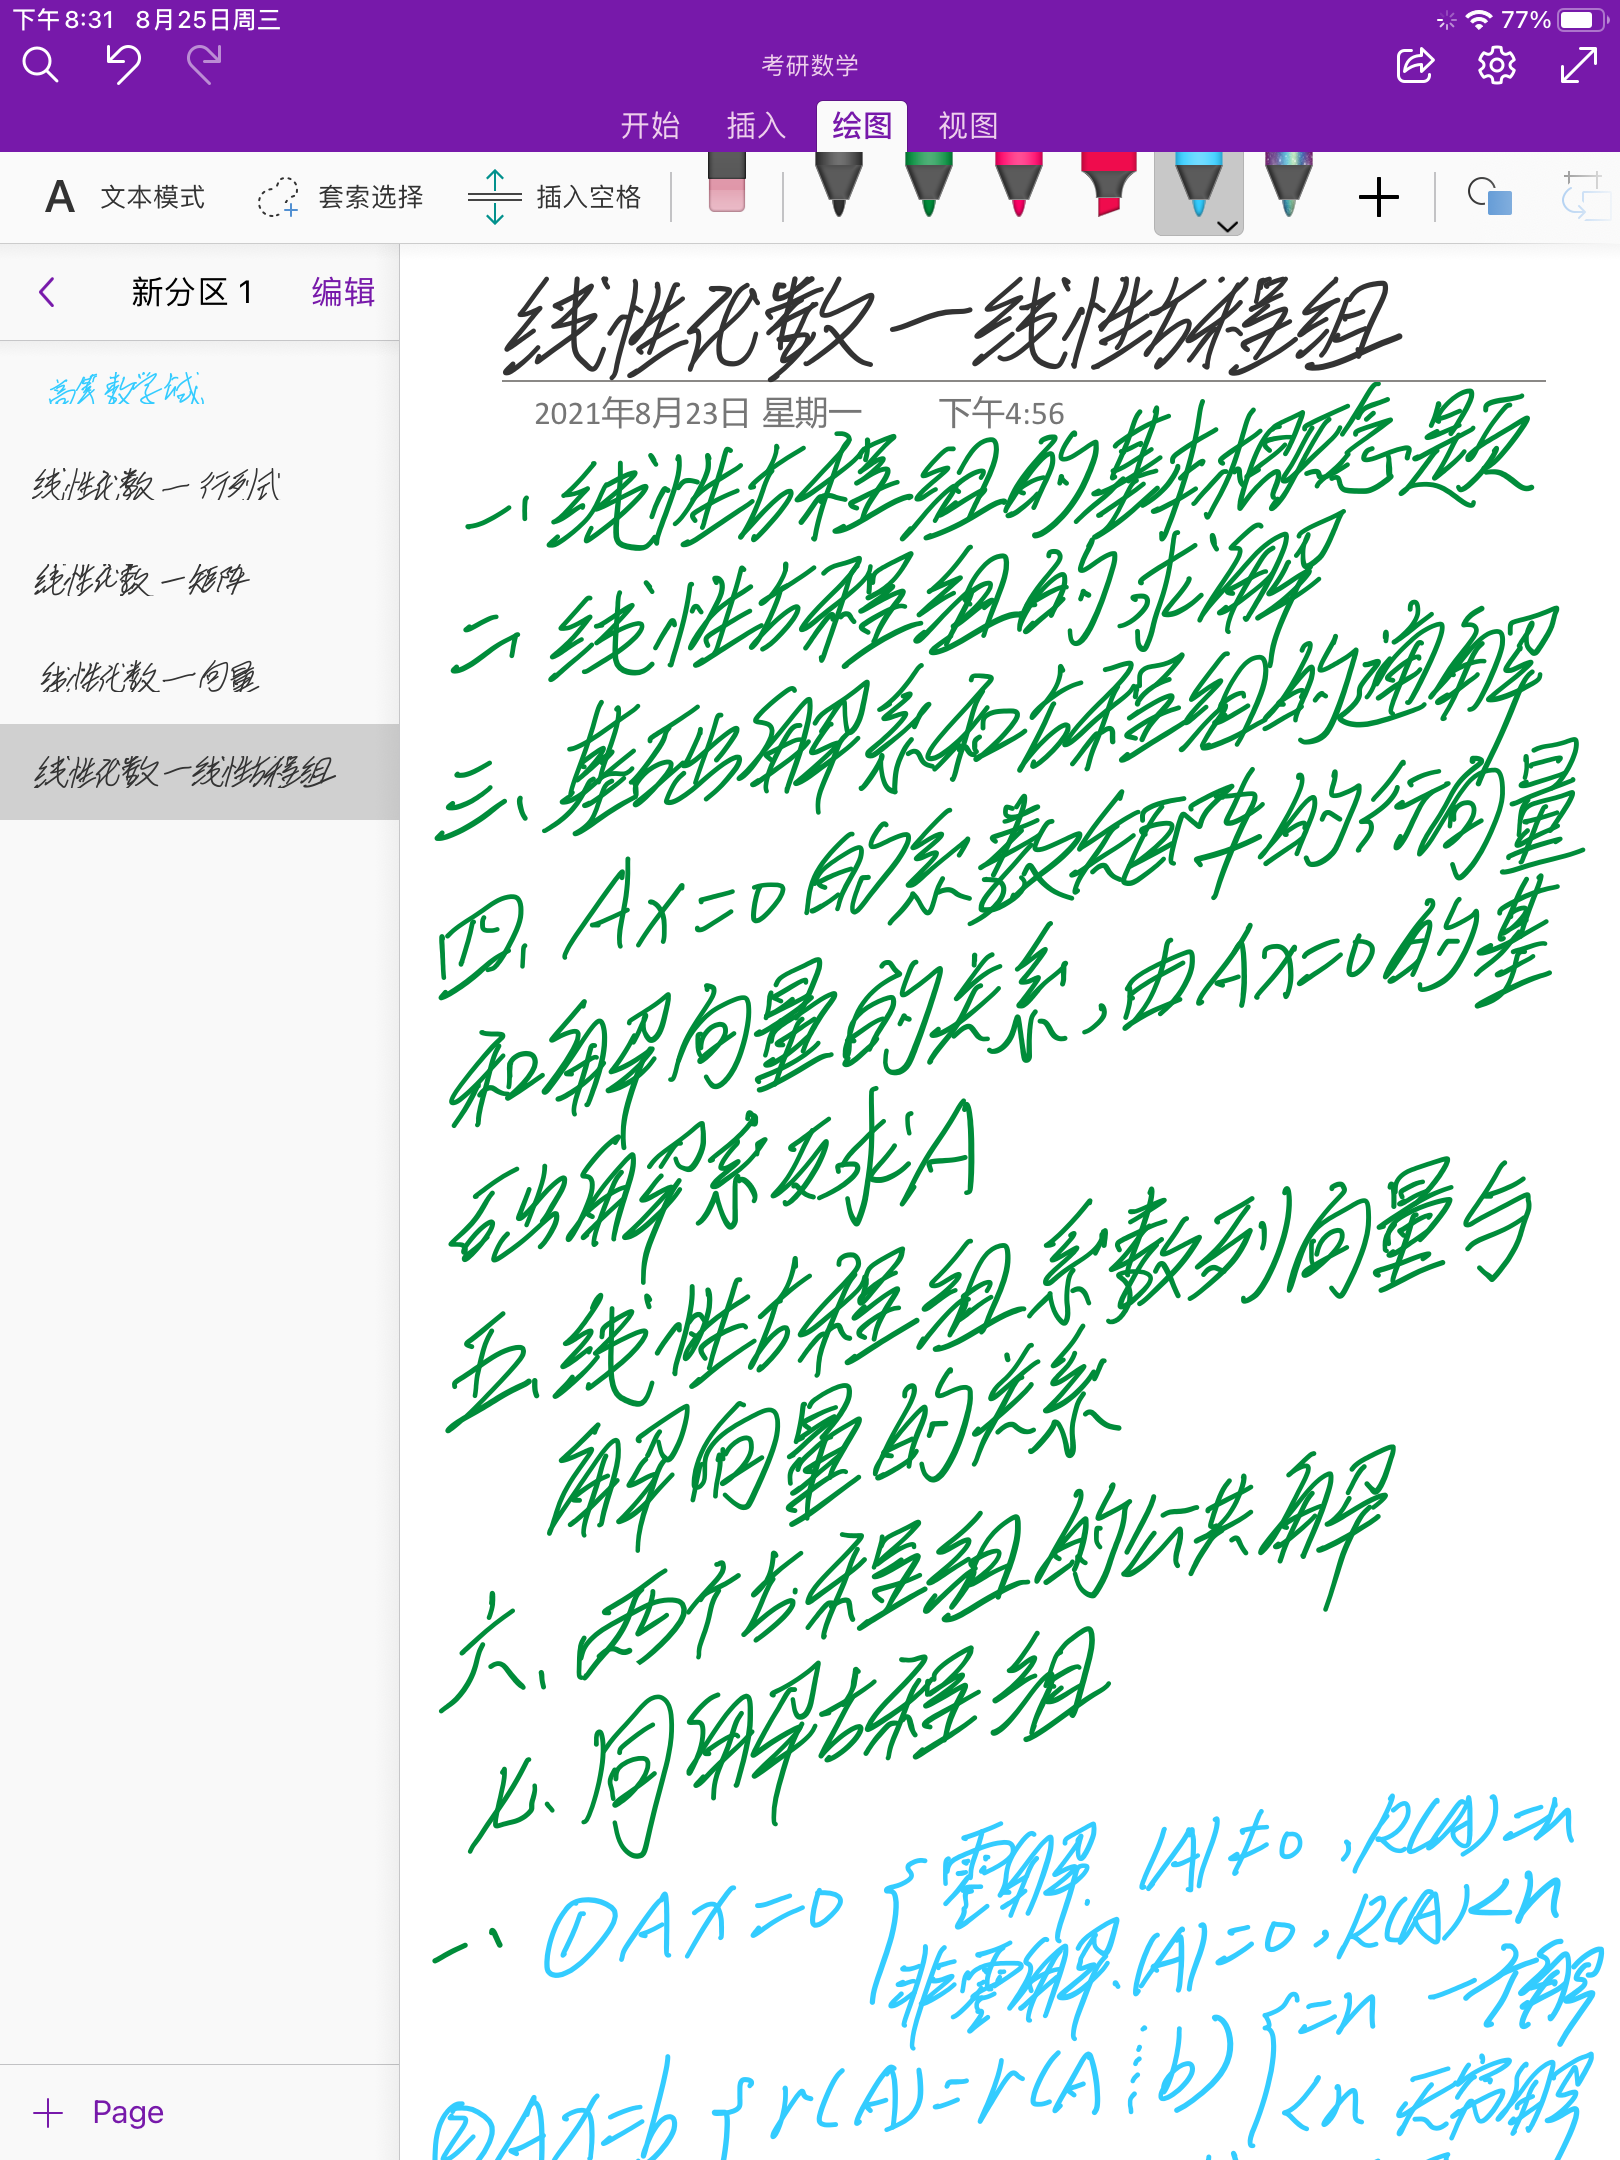 下午8:31 8月25日周三 77%
考研数学
开始 插入 绘图 视图
A 文本模式 套索选择 插入空格
新分区 1 编辑
线性代数一行列式
线性代数一矩阵
线性代数一向量
线性代数一线性方程组
Page
线性代数一线性方程组
2021年8月23日 星期一 下午4:56
一、线性方程组的基本概念题
二、线性方程组的求解
三、基础解系和方程组的通解
四、Ax=0的系数矩阵的行向量
和解向量的关系,由Ax=0的基
础解系反求A
五、线性方程组系数列向量与
解向量的关系
六、两个方程组的公共解
七、同解方程组
一、①Ax=0 { 零解. |A|≠0,R(A)=n
非零解. |A|=0,R(A)<n
②Ax=b { r(A)=r(A⋮b) { =n 一个解
<n 无穷解